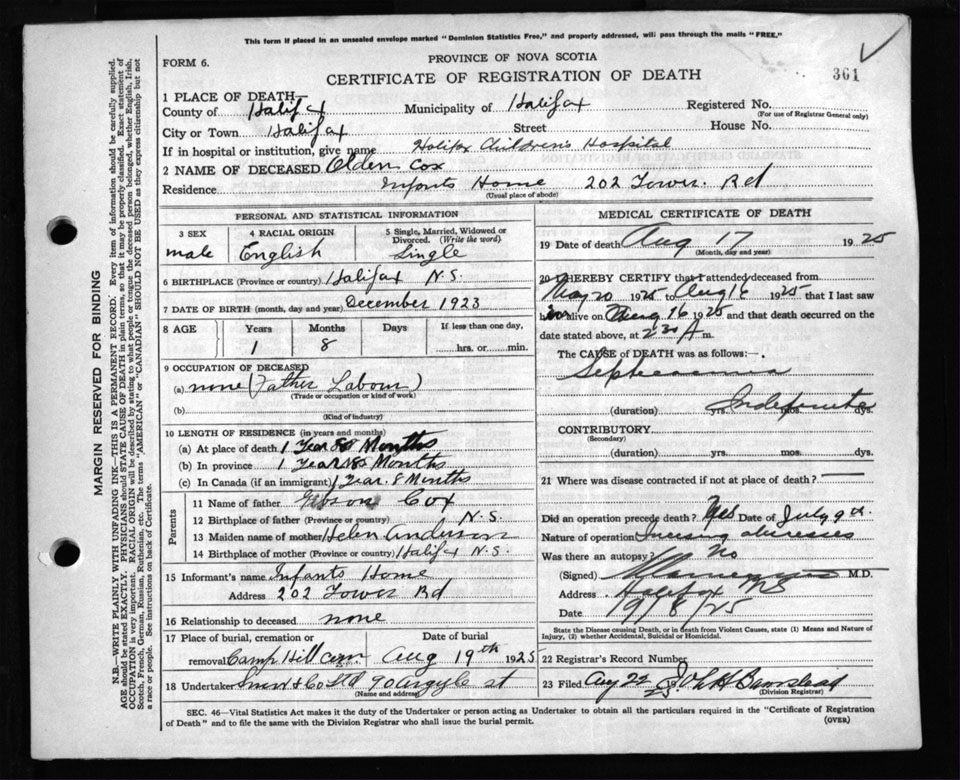 This form if placed in an unsealed envelope marked "Dominion Statistics Free," and properly addressed, will pass through the mails "FREE."
FORM 6.
PROVINCE OF NOVA SCOTIA
CERTIFICATE OF REGISTRATION OF DEATH
361
1 PLACE OF DEATH—
County of Halifax Municipality of Halifax Registered No.
(For use of Registrar General only)
City or Town Halifax Street House No.
If in hospital or institution, give name Halifax Children's Hospital
2 NAME OF DECEASED Olden Cox
Residence Infants Home 202 Tower. Rd
(Usual place of abode)
MARGIN RESERVED FOR BINDING
N.B.—WRITE PLAINLY WITH UNFADING INK—THIS IS A PERMANENT RECORD. Every item of information should be carefully supplied.
AGE should be stated EXACTLY. PHYSICIANS should STATE CAUSE OF DEATH in plain terms, so that it may be properly classified. Exact statement of
OCCUPATION is very important. RACIAL ORIGIN will be described by stating to what people or tongue the deceased person belonged, whether English, Irish,
Scotch, French, German, Russian, Ruthenian, etc. The terms "AMERICAN" or "CANADIAN" SHOULD NOT BE USED as they express citizenship but not
a race or people. See instructions on back of Certificate.
PERSONAL AND STATISTICAL INFORMATION
3 SEX
male
4 RACIAL ORIGIN
English
5 Single, Married, Widowed or
Divorced. (Write the word)
Single
6 BIRTHPLACE (Province or country) Halifax N.S.
7 DATE OF BIRTH (month, day and year) December 1923
8 AGE Years Months Days If less than one day,
1 8 hrs. or min.
9 OCCUPATION OF DECEASED
(a) none (Father Labour)
(Trade or occupation or kind of work)
(b)
(Kind of industry)
10 LENGTH OF RESIDENCE (in years and months)
(a) At place of death 1 Year 8 Months
(b) In province 1 Year 8 Months
(c) In Canada (if an immigrant) 1 Year. 8 Months
Parents
11 Name of father Gibson Cox
12 Birthplace of father (Province or country) N.S.
13 Maiden name of mother Helen Anderson
14 Birthplace of mother (Province or country) Halifax N.S.
15 Informant's name Infants Home
Address 202 Tower Rd
16 Relationship to deceased none
17 Place of burial, cremation or Date of burial
removal Camp Hill Cem. Aug 19th 1925
18 Undertaker Snow & Co Ltd 90 Argyle St
(Name and address)
MEDICAL CERTIFICATE OF DEATH
19 Date of death Aug 17 1925
(Month, day and year)
20 I HEREBY CERTIFY that I attended deceased from
May 20 1925 to Aug 16 1925 that I last saw
alive on Aug 16 1925 and that death occurred on the
date stated above, at 2 30 A m.
The CAUSE of DEATH was as follows:—
Septicaemia
(duration) Indefinite yrs. mos. dys.
CONTRIBUTORY
(Secondary)
(duration) yrs. mos. dys.
21 Where was disease contracted if not at place of death?
Did an operation precede death? Yes Date of July 9th.
Nature of operation Incising abscesses
Was there an autopsy? No
(Signed) M.D.
Address Halifax NS
Date 19/8/25
State the Disease causing Death, or in death from Violent Causes, state (1) Means and Nature of
Injury, (2) whether Accidental, Suicidal or Homicidal.
22 Registrar's Record Number
23 Filed Aug 22 John H Barnstead
(Division Registrar)
SEC. 46—Vital Statistics Act makes it the duty of the Undertaker or person acting as Undertaker to obtain all the particulars required in the "Certificate of Registration
of Death" and to file the same with the Division Registrar who shall issue the burial permit.
(OVER)